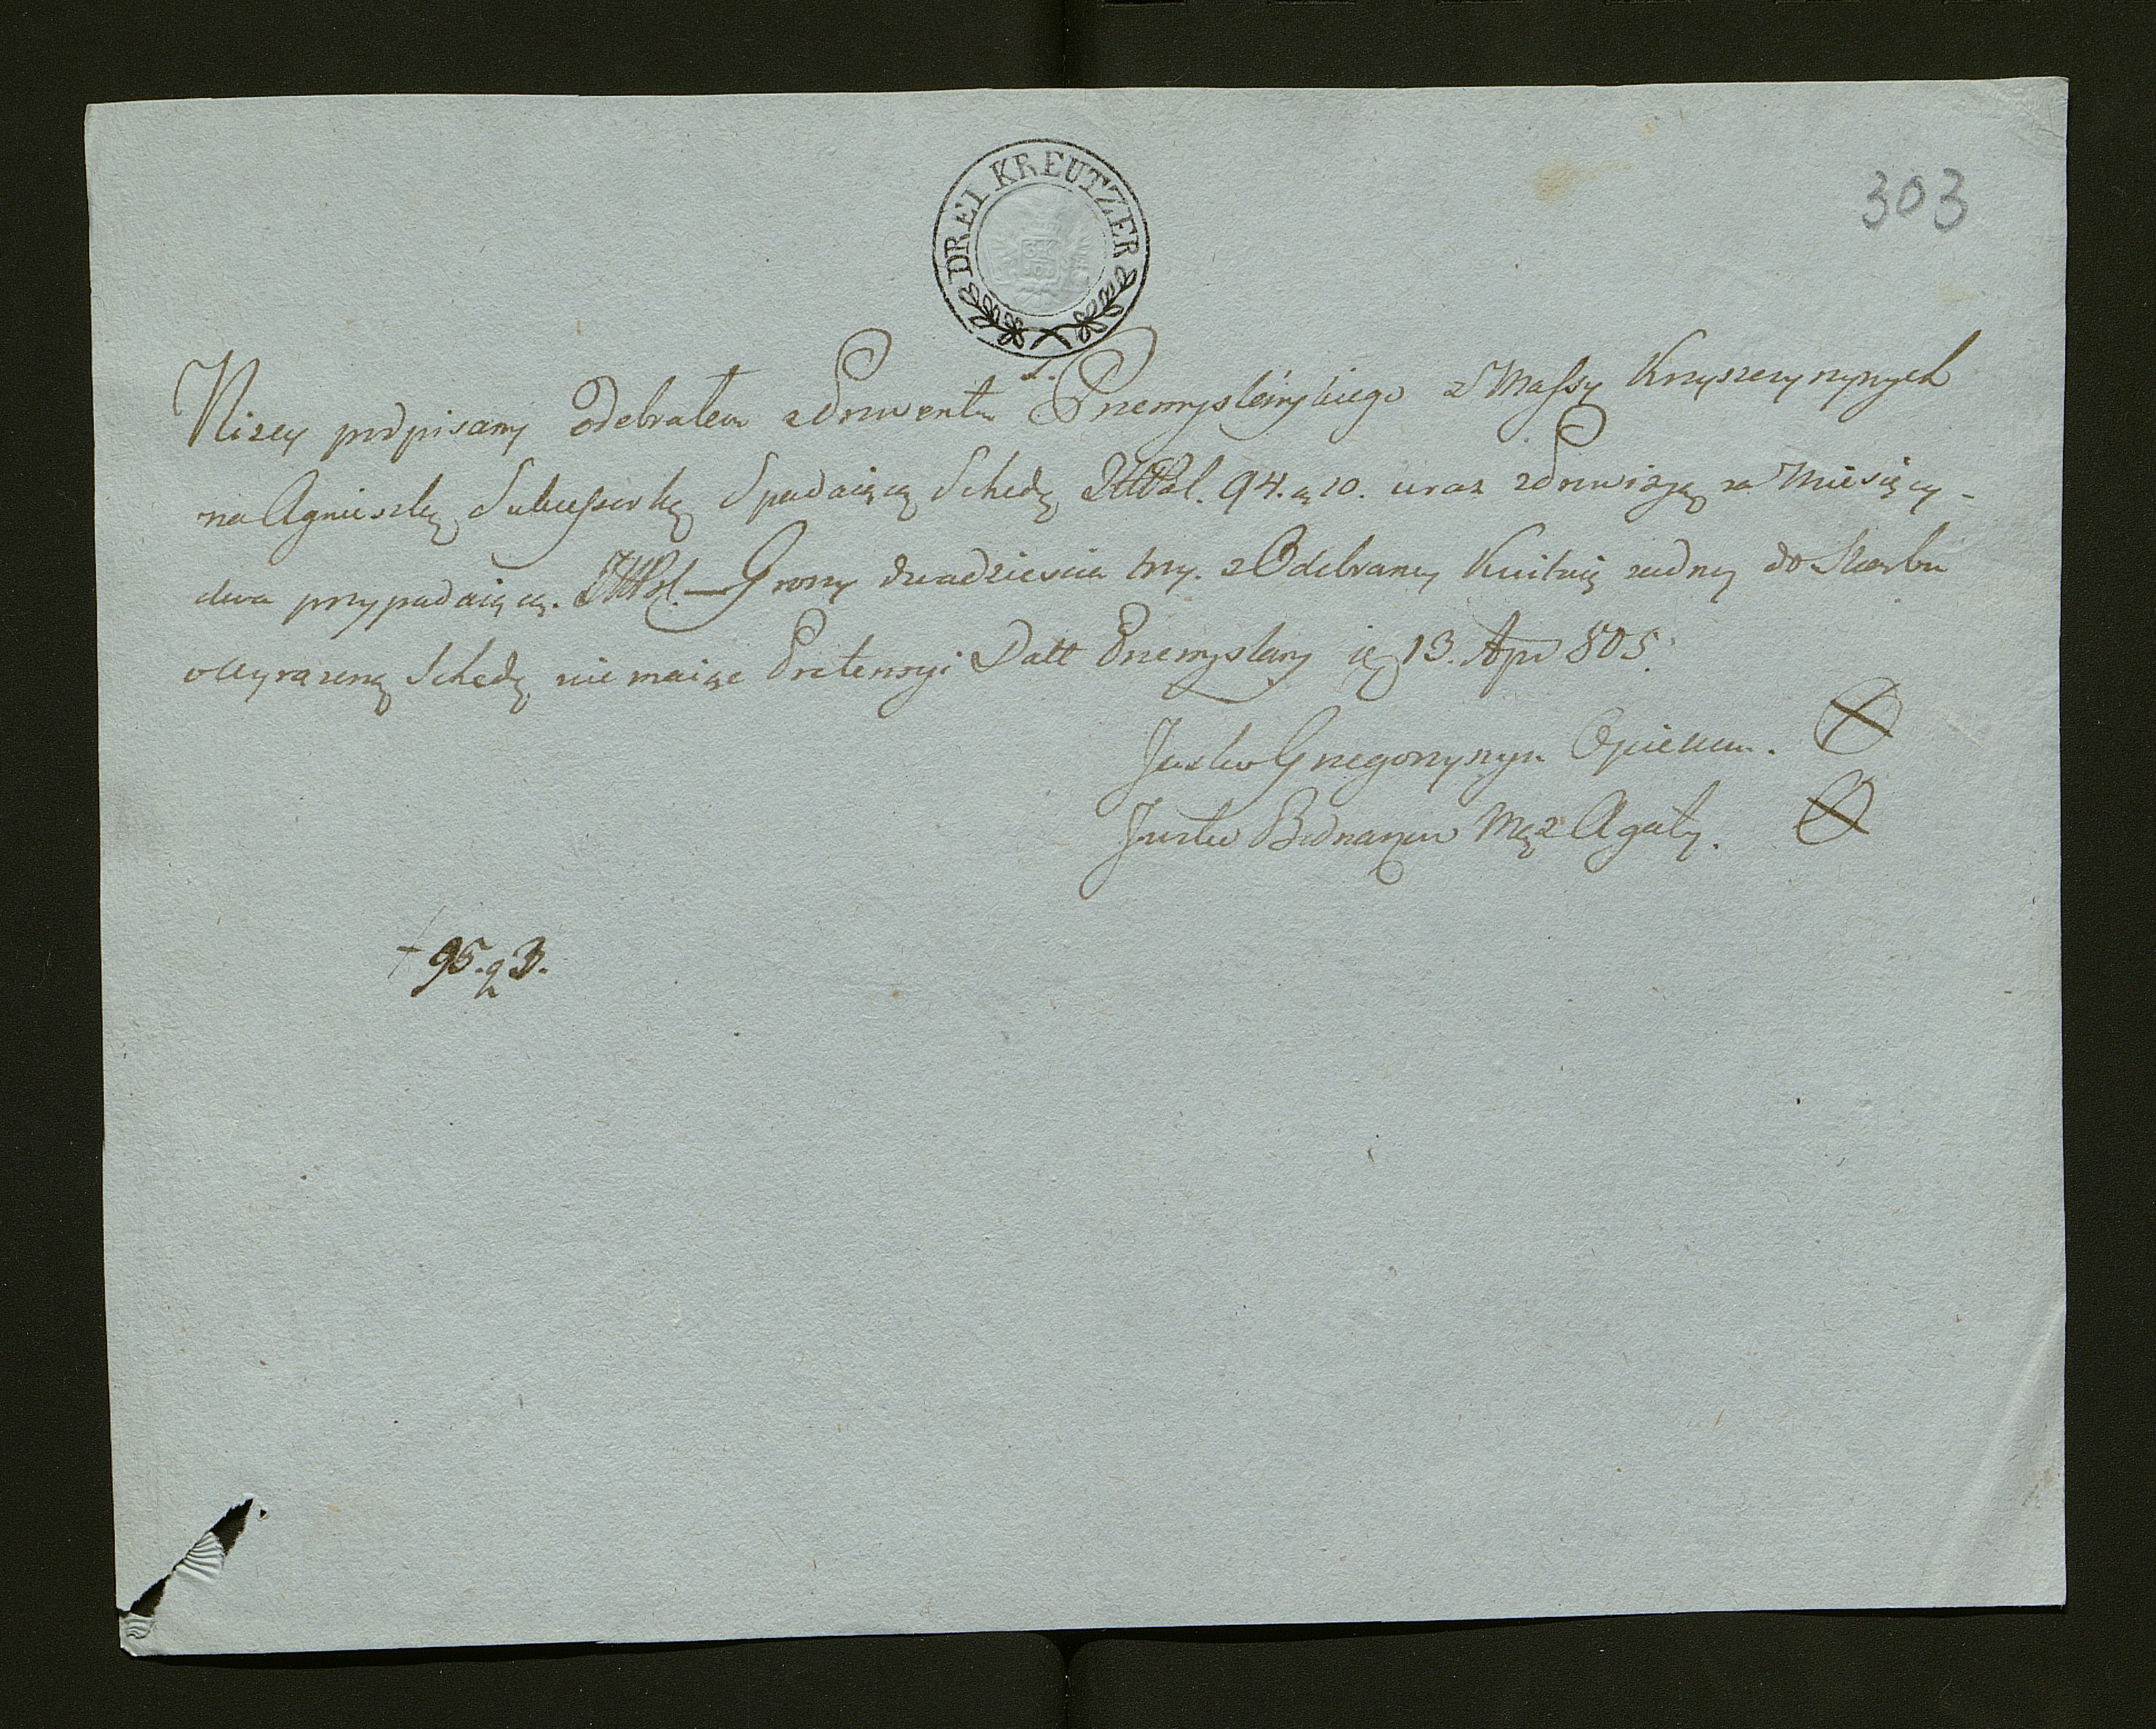 DREI KREUTZER
303
Nizey podpisany odebrałem z Prowentu Przemyslańskiego z Massy Krzyszczynynych
na Agnieszkę Sukcessorkę Spadaiącą Schedę 94. g 10. wraz z Prowizyą za Miesięcy
dwa przypadaiącą. Groszy dwadziescia trzy. z Odebraney Kwituię zadney do Skarbu
o wyrazoną Schedę nie maiąc Pretensyi Datt Przemyslany 13. Apr 805.
Jusko Grzegorzynyn Opiekun.
Jusko Bednarzow Mąz Agaty.
95. g 3.